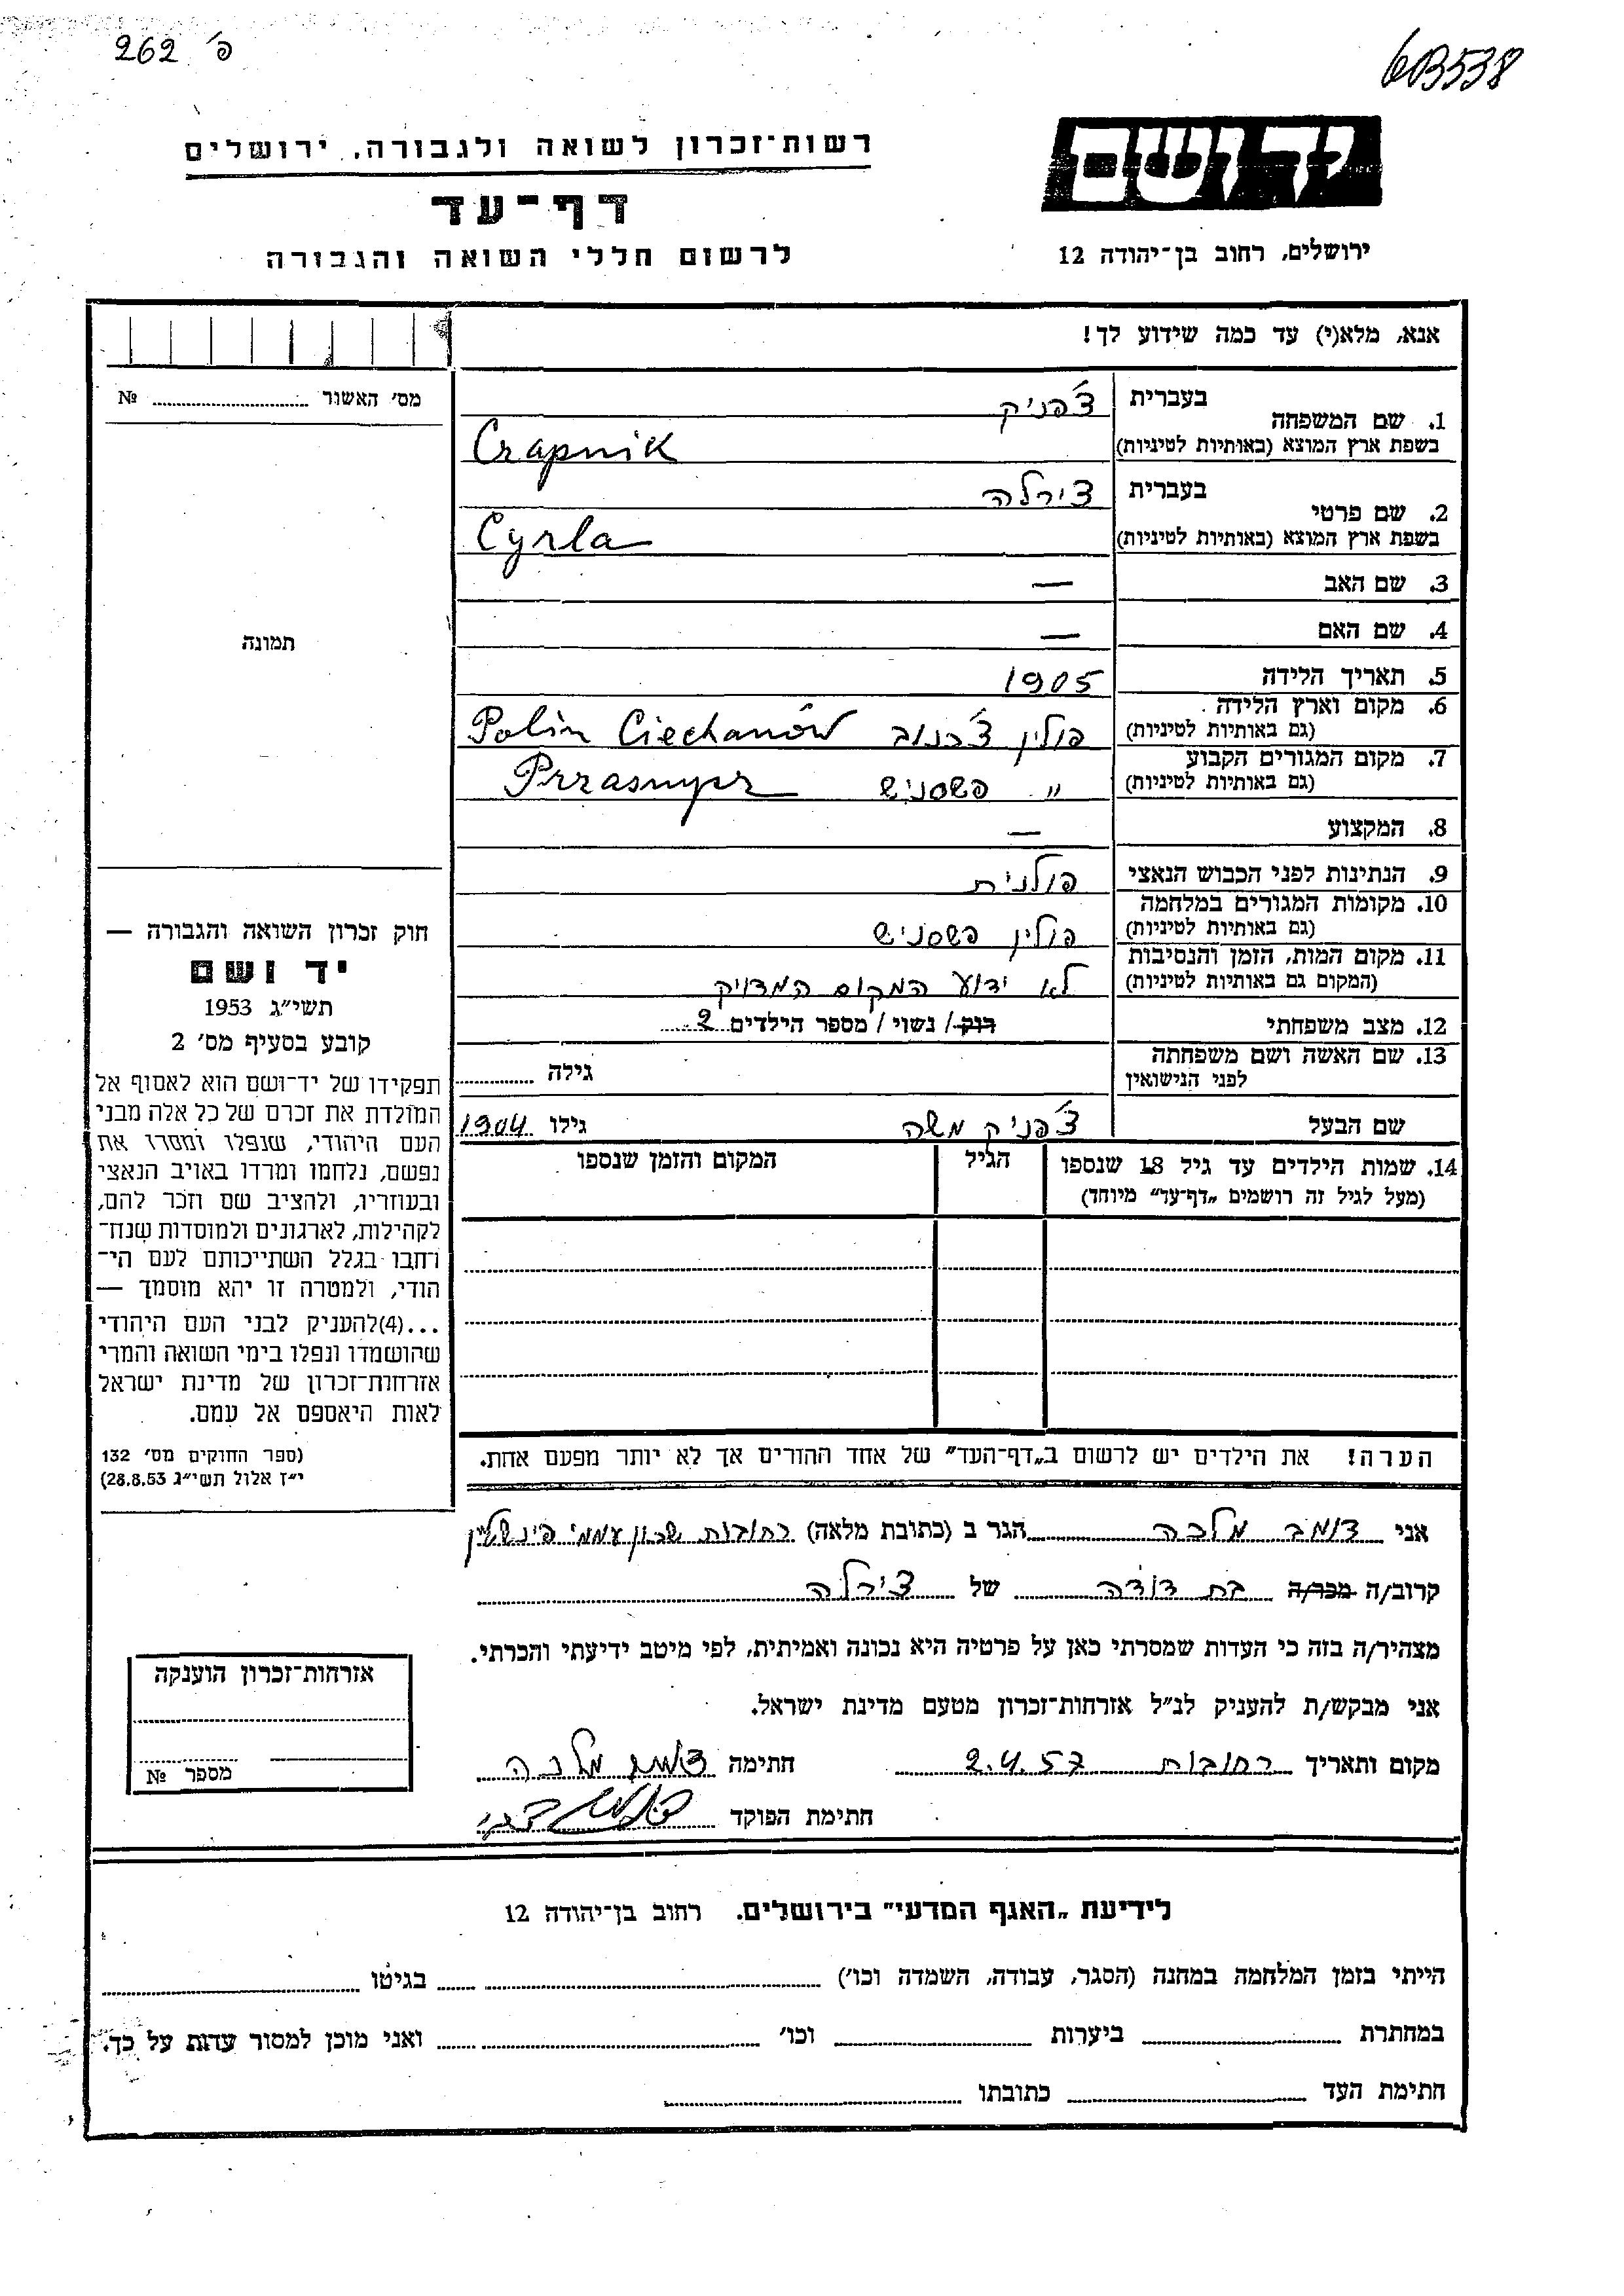 262 פ׳
603538
יד ושם
רשות־זכרון לשואה ולגבורה. ירושלים
דף־עד
לרשום חללי השואה והגבורה
ירושלים, רחוב בן־יהודה 12
אנא, מלא(י) עד כמה שידוע לך!
מס׳ האשור № 
1. שם המשפחה
בעברית צ׳פניק
בשפת ארץ המוצא (באותיות לטיניות) Crapnik
2. שם פרטי
בעברית צירלה
בשפת ארץ המוצא (באותיות לטיניות) Cyrla
3. שם האב —
4. שם האם —
5. תאריך הלידה 1905
6. מקום וארץ הלידה
(גם באותיות לטיניות) פולין צ׳כנוב Polin Ciechanów
7. מקום המגורים הקבוע
(גם באותיות לטיניות) " פשסניש Przasnysz
8. המקצוע —
9. הנתינות לפני הכבוש הנאצי פולנית
10. מקומות המגורים במלחמה
(גם באותיות לטיניות) פולין פשסניש
11. מקום המות, הזמן והנסיבות
(המקום גם באותיות לטיניות) לא ידוע המקום המדויק
12. מצב משפחתי רוק / נשוי / מספר הילדים 2
13. שם האשה ושם משפחתה
לפני הנישואין גילה
שם הבעל צ׳פניק משה גילו 1904
14. שמות הילדים עד גיל 18 שנספו הגיל המקום והזמן שנספו
(מעל לגיל זה רושמים „דף־עד״ מיוחד)
הערה! את הילדים יש לרשום ב„דף־העד״ של אחד ההורים אך לא יותר מפעם אחת.
תמונה
חוק זכרון השואה והגבורה —
יד ושם
תשי״ג 1953
קובע בסעיף מס׳ 2
תפקידו של יד־ושם הוא לאסוף אל
המולדת את זכרם של כל אלה מבני
העם היהודי, שנפלו ומסרו את
נפשם, נלחמו ומרדו באויב הנאצי
ובעוזריו, ולהציב שם וזכר להם,
לקהילות, לארגונים ולמוסדות שנח־
רחבו בגלל השתייכותם לעם הי־
הודי, ולמטרה זו יהא מוסמך —
...(4)להעניק לבני העם היהודי
שהושמדו ונפלו בימי השואה והמרי
אזרחות־זכרון של מדינת ישראל
לאות היאספם אל עמם.
(ספר החוקים מס׳ 132
י״ז אלול תשי״ג 28.8.53)
אני דומב מלכה הגר ב (כתובת מלאה) רחובות שכון עממי
קרוב/ה מכר/ה בת דודה של צירלה
מצהיר/ה בזה כי העדות שמסרתי כאן על פרטיה היא נכונה ואמיתית, לפי מיטב ידיעתי והכרתי.
אני מבקש/ת להעניק לנ״ל אזרחות־זכרון מטעם מדינת ישראל.
מקום ותאריך רחובות 2.4.57 חתימה דומב מלכה
חתימת הפוקד
אזרחות־זכרון הוענקה
מספר №
לידיעת „האגף המדעי״ בירושלים. רחוב בן־יהודה 12
הייתי בזמן המלחמה במחנה (הסגר, עבודה, השמדה וכו׳) בגיטו
במחתרת ביערות וכו׳ ואני מוכן למסור עדות על כך.
חתימת העד כתובתו